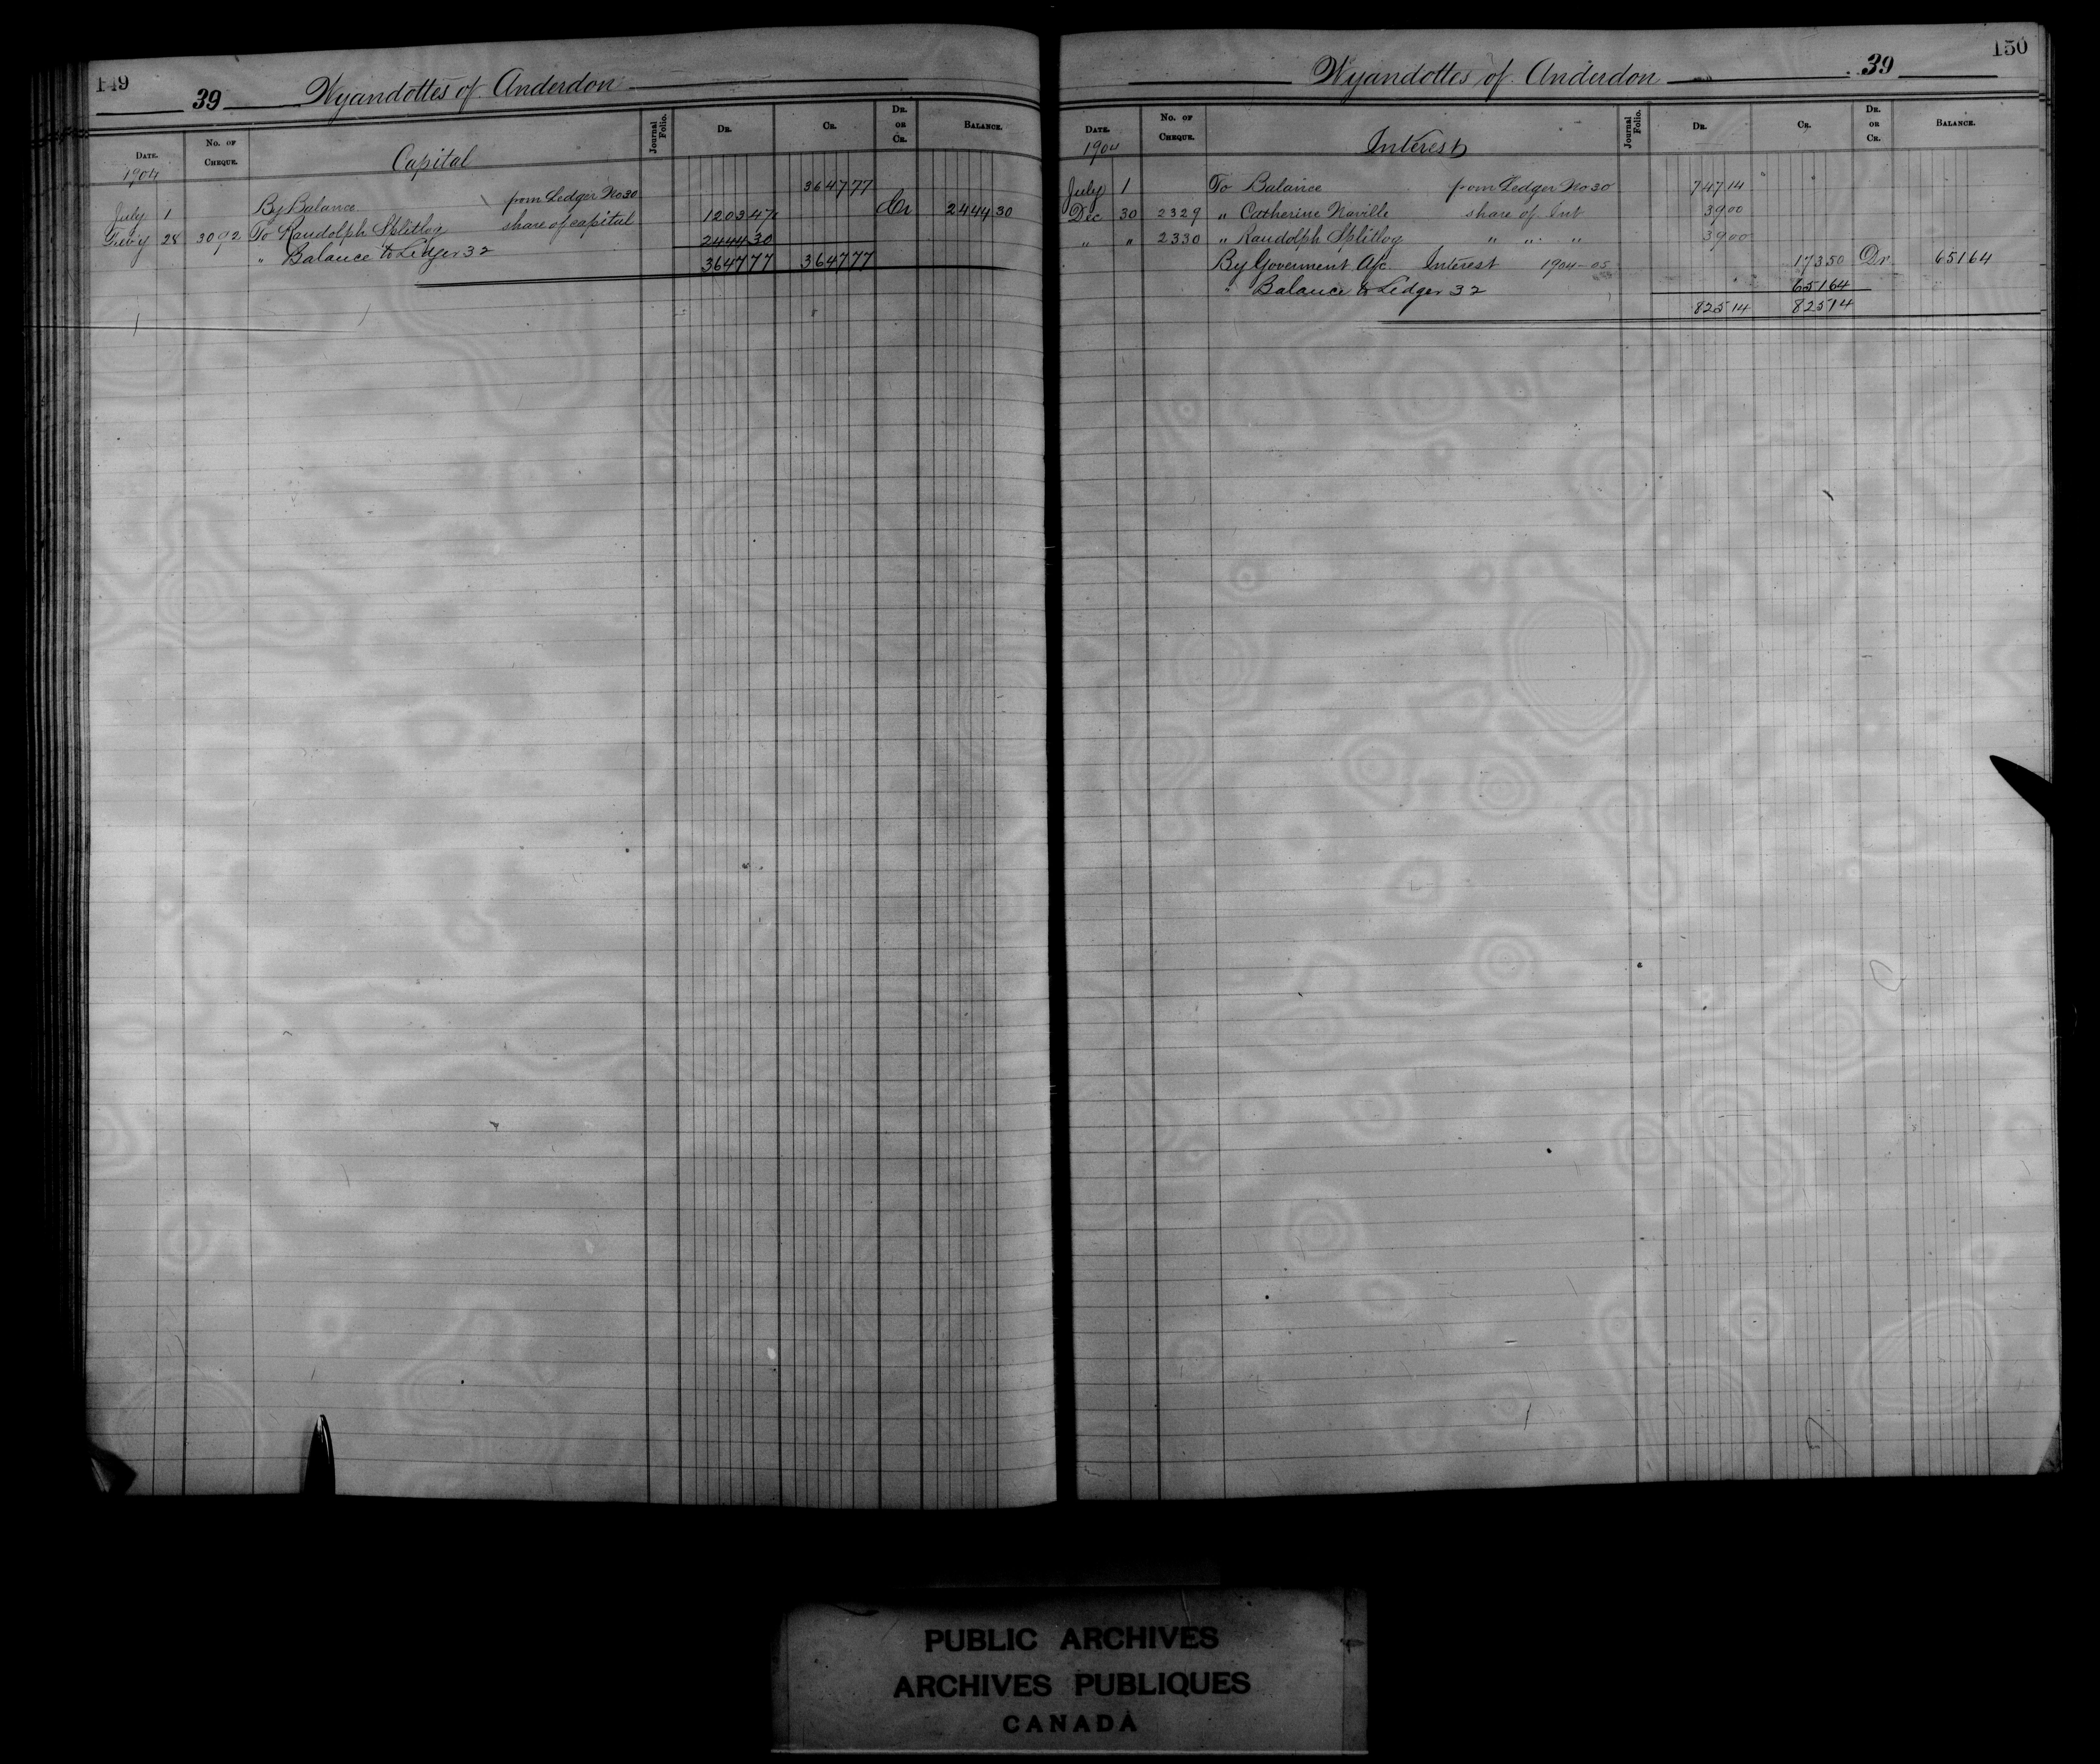 149
39 Wyandottes of Anderdon
DATE. No. OF CHEQUE. Capital Journal Folio. DR. CR. DR. OR CR. BALANCE.
1904
July 1 By Balance from Ledger No 30 3647 77
Feb'y 28 3092 To Randolph Splitlog share of capital 1203 47 Cr 2444 30
" Balance to Ledger 32 2444 30
3647 77 3647 77
150
Wyandottes of Anderdon 39
DATE. No. OF CHEQUE. Interest Journal Folio. DR. CR. DR. OR CR. BALANCE.
1904
July 1 To Balance from Ledger No 30 747 14
Dec 30 2329 " Catherine Naville share of Int 39 00
" " 2330 " Randolph Splitlog " " " 39 00
By Goverment A/c Interest 1904-05 173 50 Dr 651 64
" Balance to Ledger 32 651 64
825 14 825 14
PUBLIC ARCHIVES
ARCHIVES PUBLIQUES
CANADA